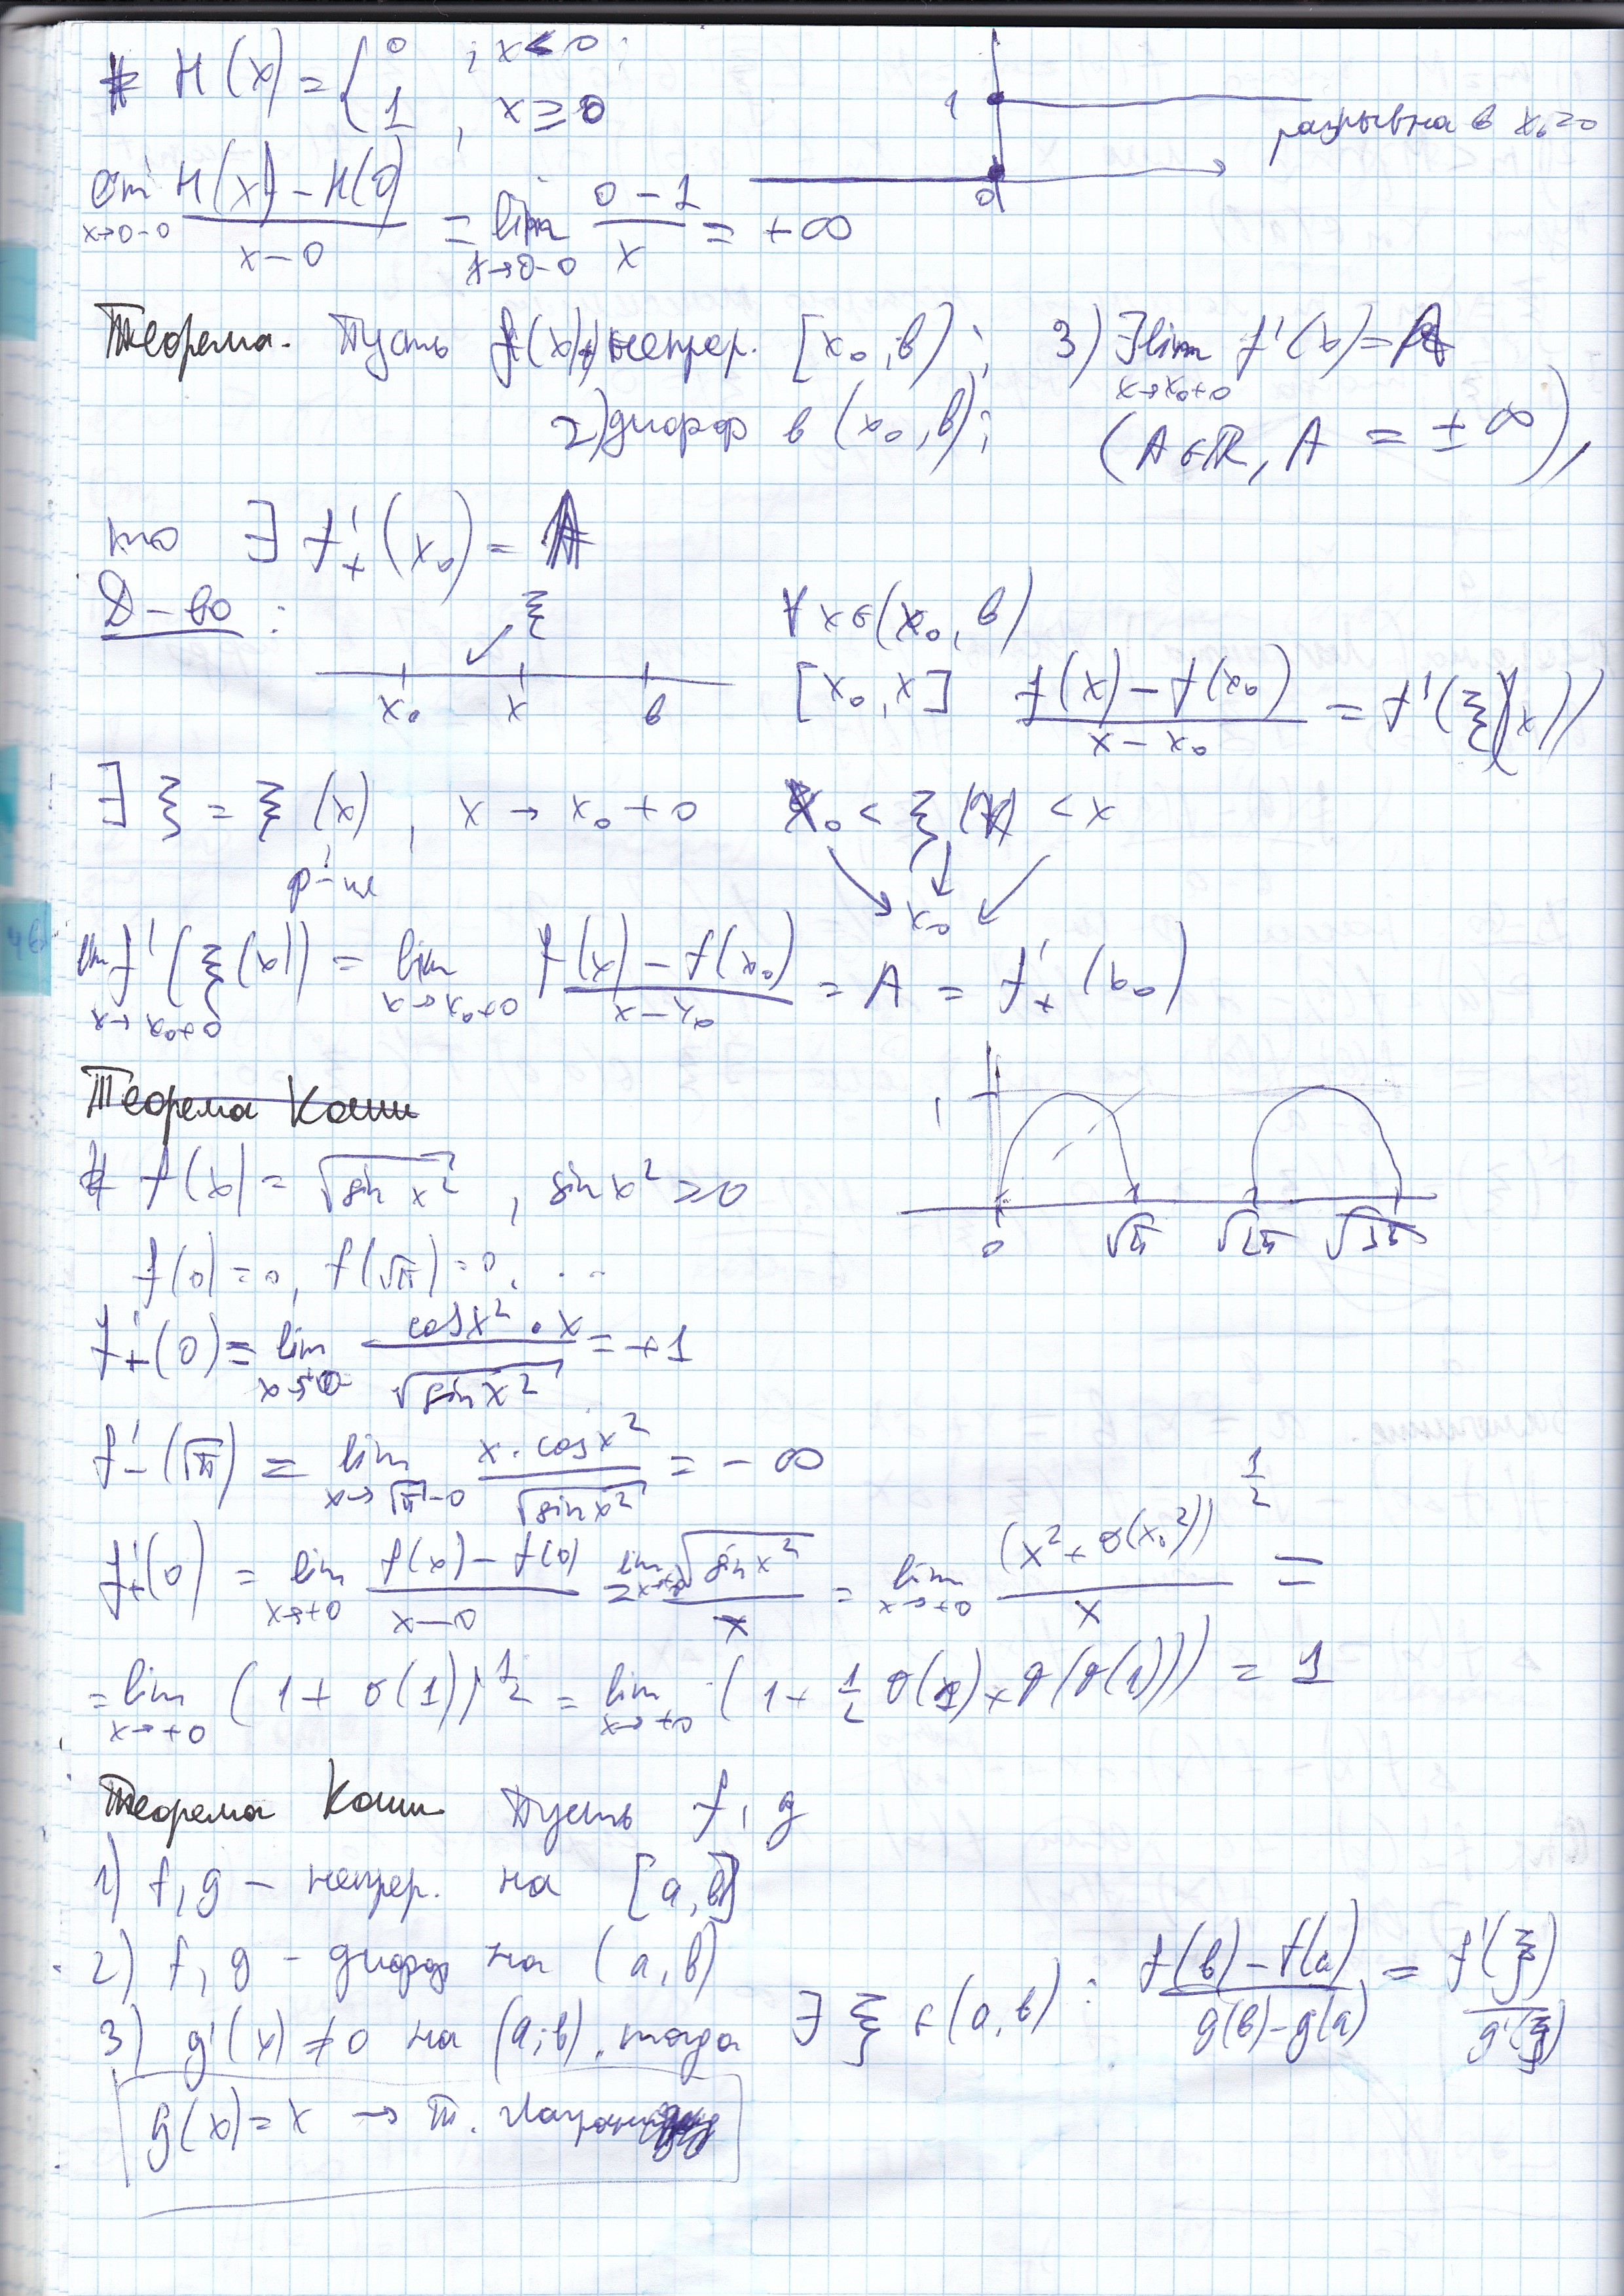 # H(x) = { 0 , x < 0 ;
1 , x ≥ 0
1
0
разрывна в x₀=0
lim_{x→0-0} (H(x) - H(0))/(x-0) = lim_{x→0-0} (0-1)/x = +∞
Теорема. Пусть f(x) непрер. [x₀, b) ; 3) ∃ lim_{x→x₀+0} f'(x) = A
2) дифф в (x₀, b) ; (A∈ℝ, A = ±∞),
то ∃ f'₊(x₀) = A
Д-во : ξ ∀ x∈(x₀, b)
x₀ x b [x₀, x] (f(x) - f(x₀))/(x - x₀) = f'(ξ(x))
∃ ξ = ξ(x) , x → x₀+0 x₀ < ξ(x) < x
ф-ия x₀
lim_{x→x₀+0} f'(ξ(x)) = lim_{x→x₀+0} (f(x) - f(x₀))/(x-x₀) = A = f'₊(x₀)
Теорема Коши
1
0 √π √2π √3π
# f(x) = √(sin x²) , sin x² ≥ 0
f(0) = 0, f(√π) = 0, ...
f'₊(0) = lim_{x→+0} (cos x² · x)/√(sin x²) = +1
f'₋(√π) = lim_{x→√π-0} (x · cos x²)/√(sin x²) = -∞
f'₊(0) = lim_{x→+0} (f(x) - f(0))/(x-0) = lim_{x→+0} √(sin x²)/x = lim_{x→+0} (x² + o(x²))^{1/2}/x =
= lim_{x→+0} (1 + o(1))^{1/2} = lim_{x→+0} (1 + 1/2 o(1) + o(o(1))) = 1
Теорема Коши Пусть f, g
1) f, g - непрер. на [a, b]
2) f, g - дифф на (a, b)
3) g'(x) ≠ 0 на (a; b). тогда ∃ ξ ∈ (a, b) : (f(b) - f(a))/(g(b) - g(a)) = f'(ξ)/g'(ξ)
g(x) = x → т.